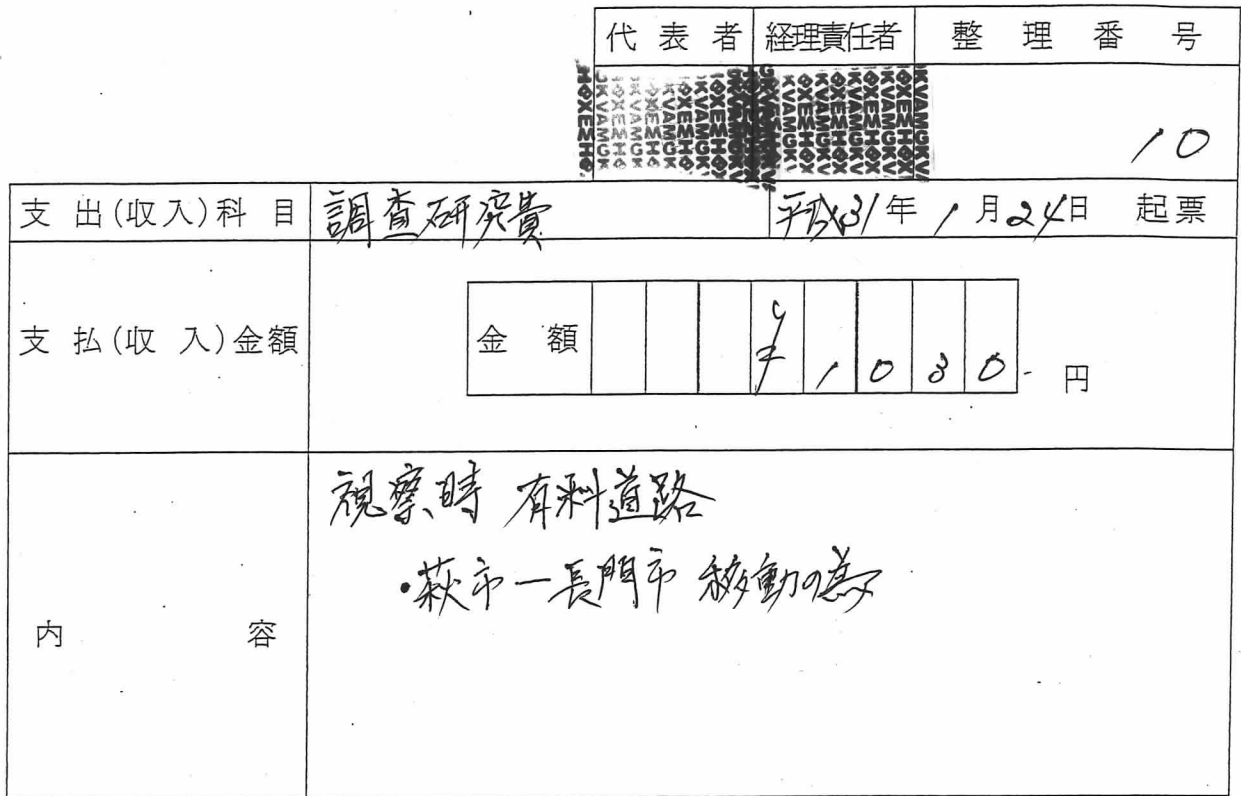 代表者 経理責任者 整理番号
10
支出(収入)科目 調査研究費 平成31年1月24日 起票
支払(収入)金額 金額 ¥1030- 円
視察時 有料道路
・萩市ー長門市 移動の為
内容